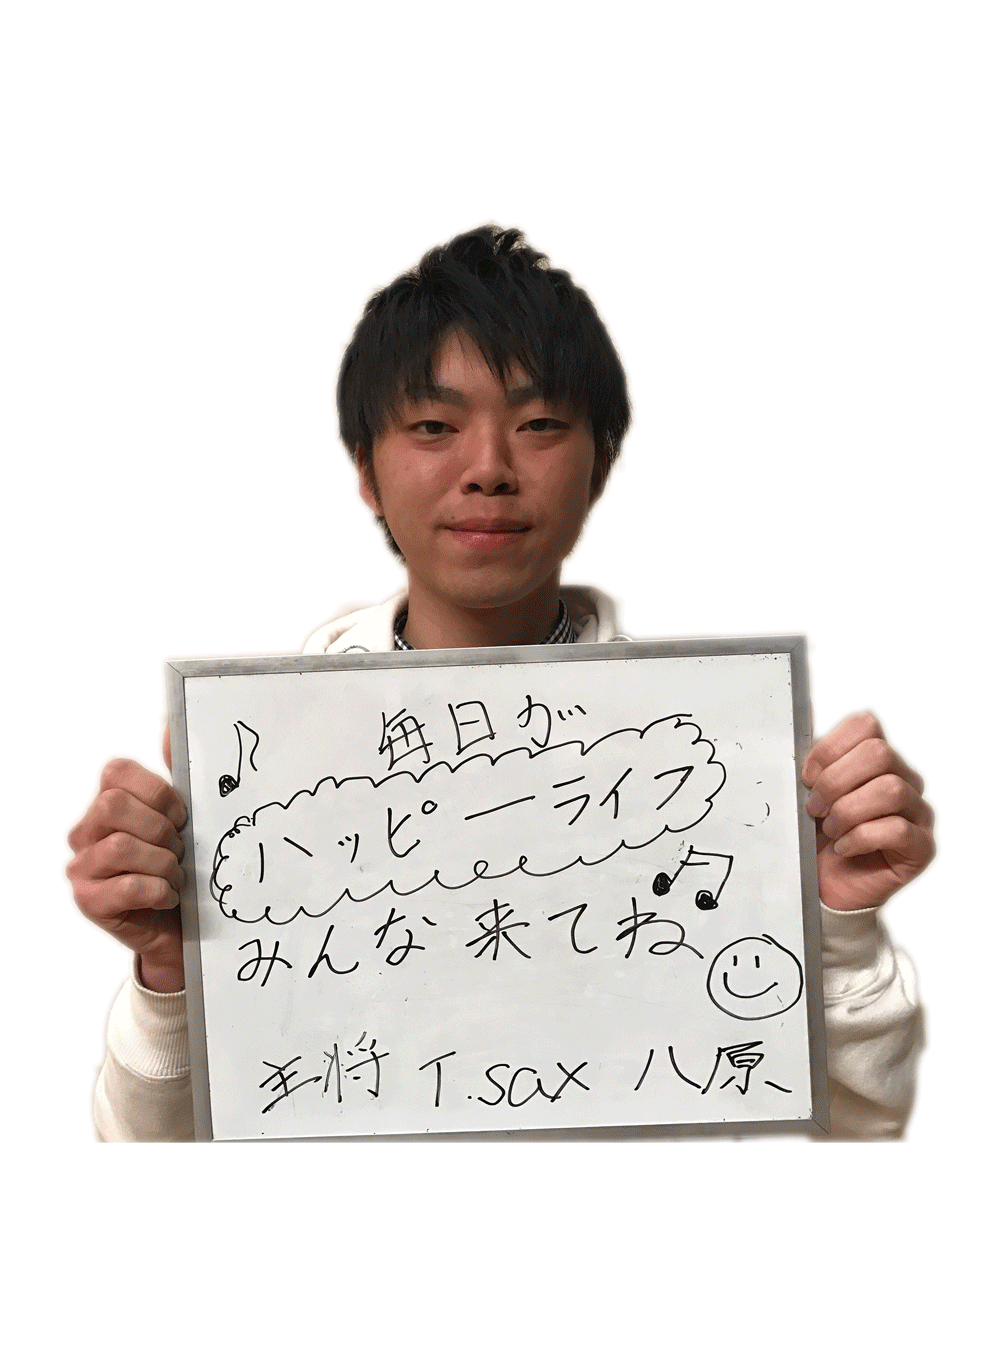 毎日が
ハッピーライフ
みんな来てね
主将 T.sax 八原